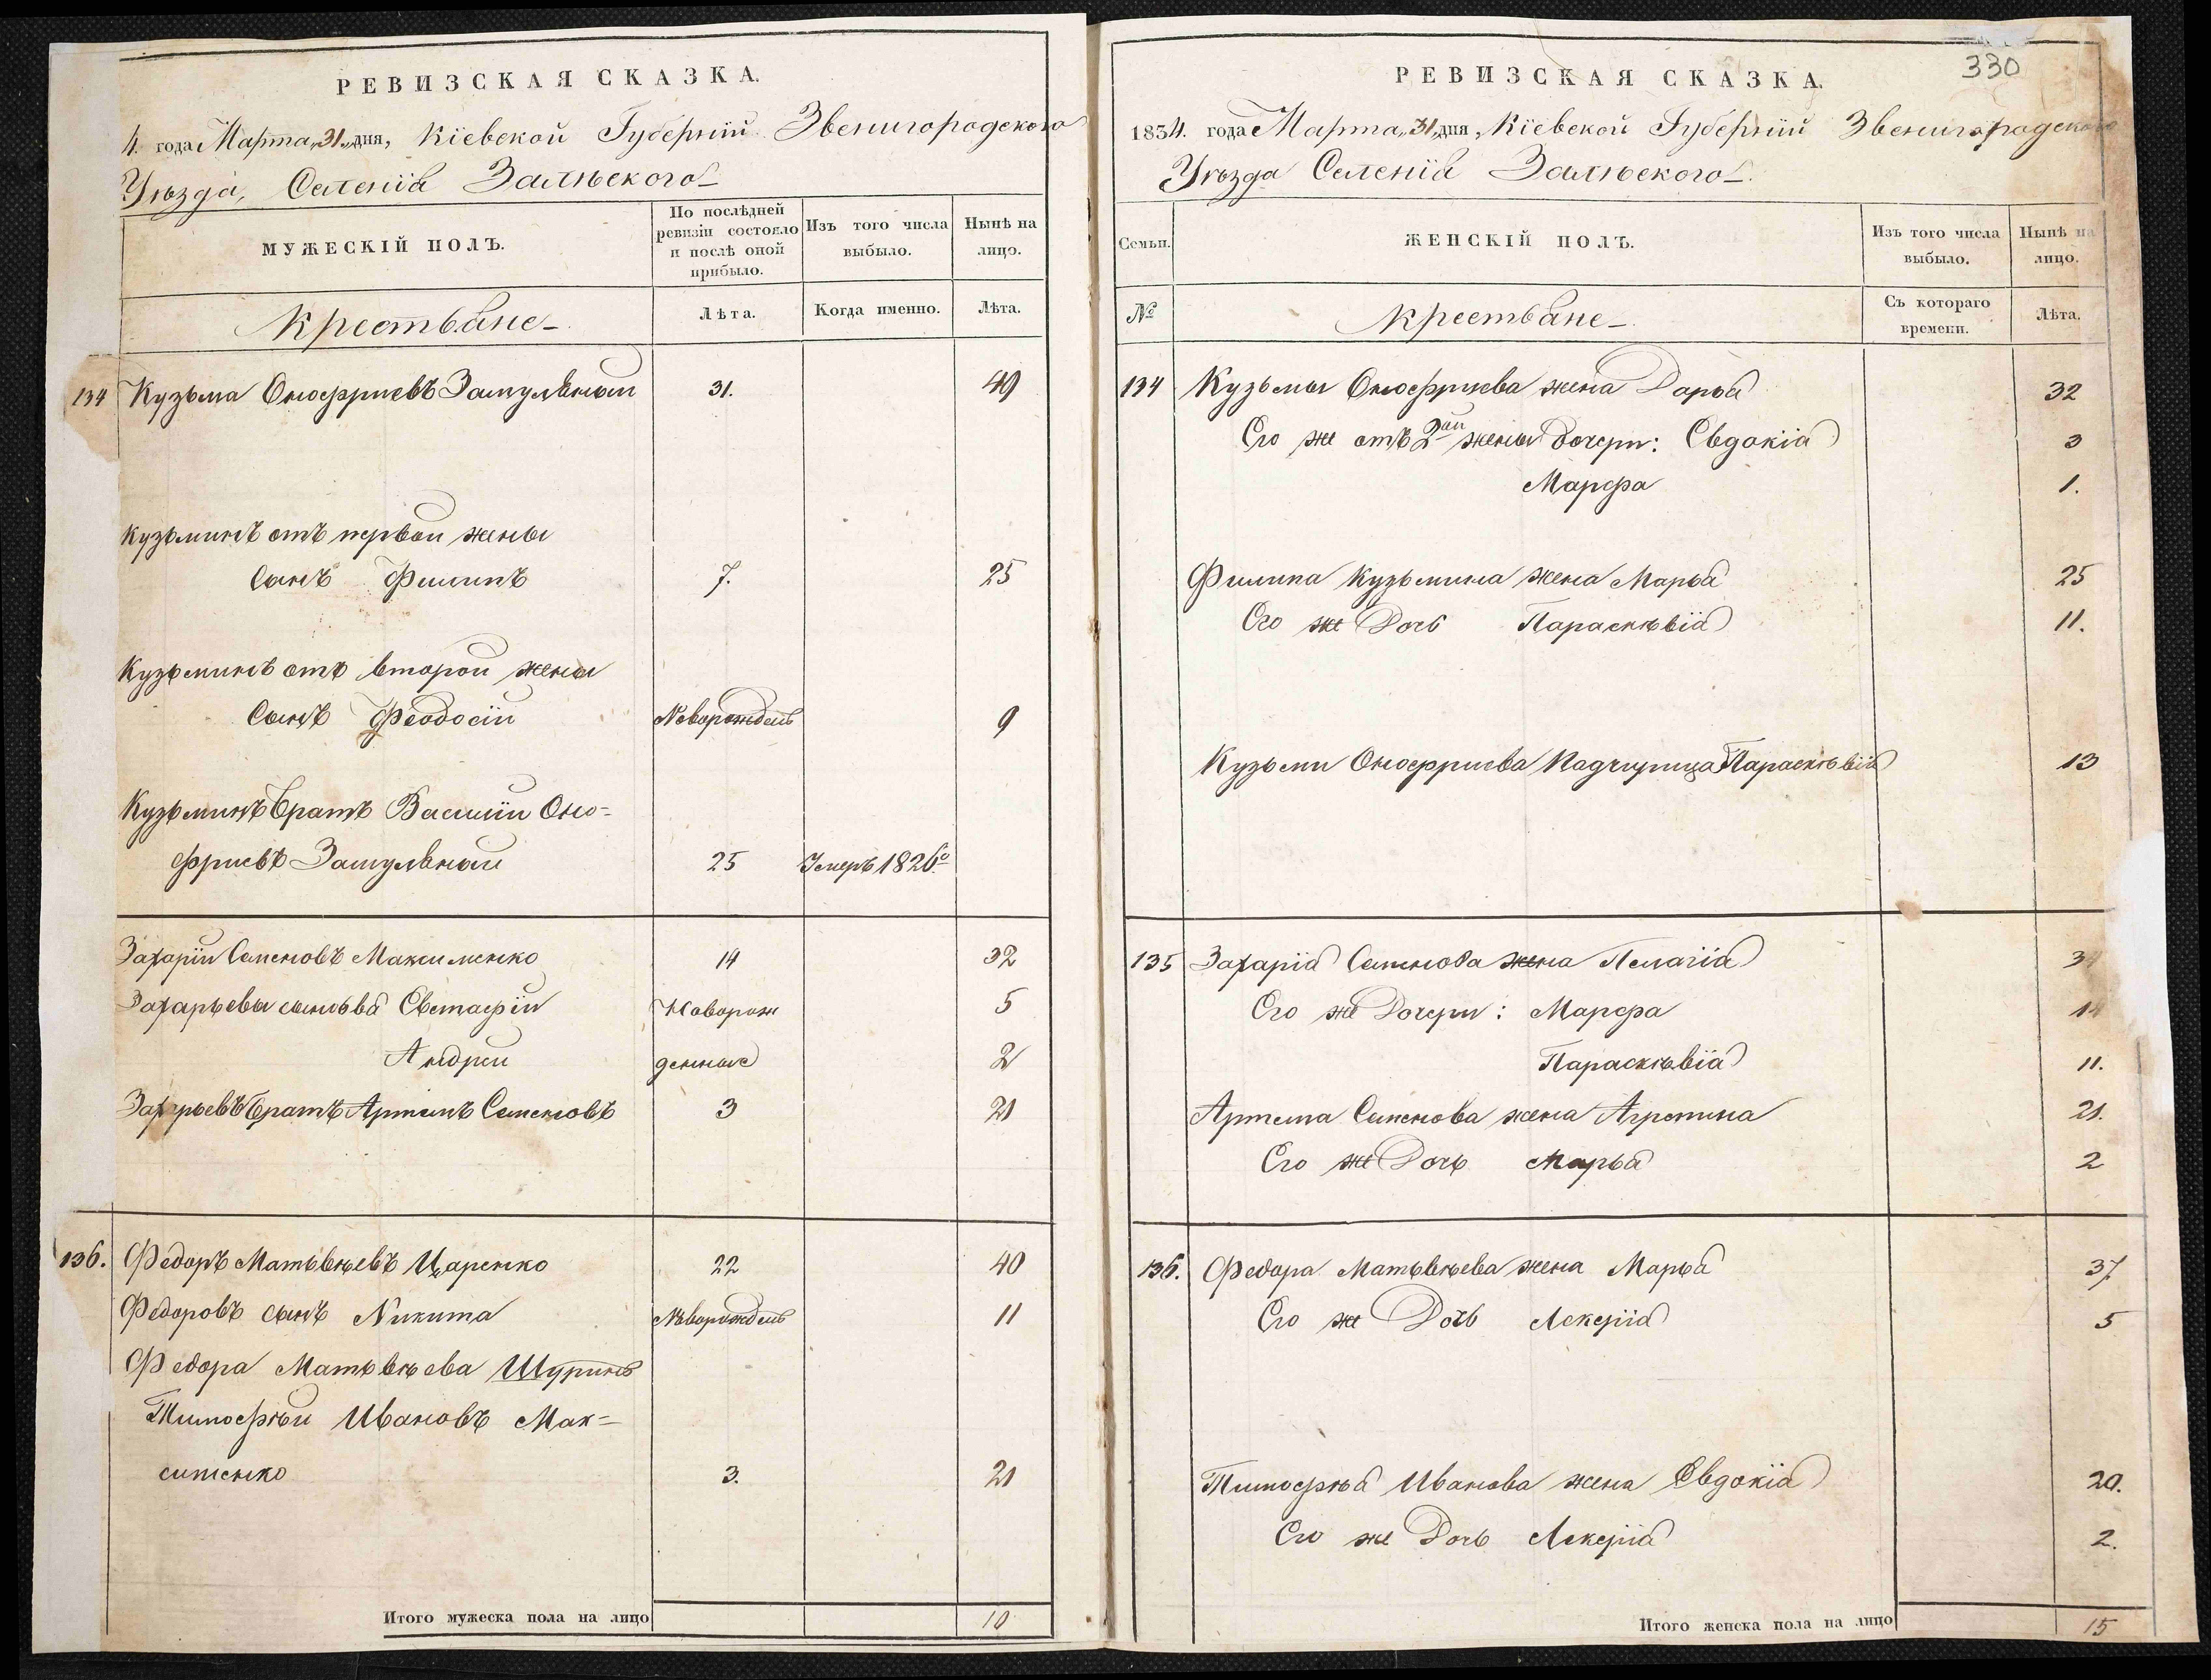 РЕВИЗСКАЯ СКАЗКА.
4. года Марта „31„ дня, Кіевской Губерніи Звенигородскаго
Уѣзда, Селенія Залѣского
МУЖЕСКІЙ ПОЛЪ.
По послѣдней ревизіи состояло и послѣ оной прибыло.
Изъ того числа выбыло.
Нынѣ на лицо.
Крестьяне
Лѣта.
Когда именно.
Лѣта.
134 Кузьма Онофріевъ 31. 49
Кузьминъ отъ первой жены
Сынъ Филипъ 7. 25
Кузьминъ отъ второй жены
Сынъ Феодосій Новорожден 9
Кузьминъ братъ Василій Оно-
фріевъ 25 Умеръ 1826.
Захарій Семеновъ Максименко 14 32
Захарьевы сыновья Евстафій Новорож 5
Андрей денные 2
Захарьевъ братъ Артемъ Семеновъ 3 21
136. Федоръ Матьвѣевъ Царенко 22 40
Федоровъ сынъ Никита Новорожден 11
Федора Матьвѣева Шуринъ
Тимофѣй Ивановъ Мак-
сименко 3. 21
Итого мужеска пола на лицо 10
330
РЕВИЗСКАЯ СКАЗКА.
1834. года Марта „31„ дня, Кіевской Губерніи Звенигородскаго
Уѣзда Селенія Залѣского
Семьи.
ЖЕНСКІЙ ПОЛЪ.
Изъ того числа выбыло.
Нынѣ на лицо.
№
Крестьяне
Съ котораго времени.
Лѣта.
134 Кузьмы Онофріева жена Дарья 32
Его же отъ 2ой жены дочери: Евдокія 3
Марфа 1.
Филипа Кузьмина жена Марья 25
Его же Дочь Параскѣвія 11.
Кузьмы Онофріева Падчерица Параскѣвія 13
135 Захарія Семенова жена Пелагія 34
Его же Дочери: Марфа 14
Параскѣвія 11.
Артема Семенова жена Агрепина 21.
Его же Дочь Марья 2
136. Федора Матьвѣева жена Марья 37
Его же Дочь Лекерія 5
Тимофѣя Иванова жена Евдокія 20.
Его же Дочь Лекерія 2.
Итого женска пола на лицо 15